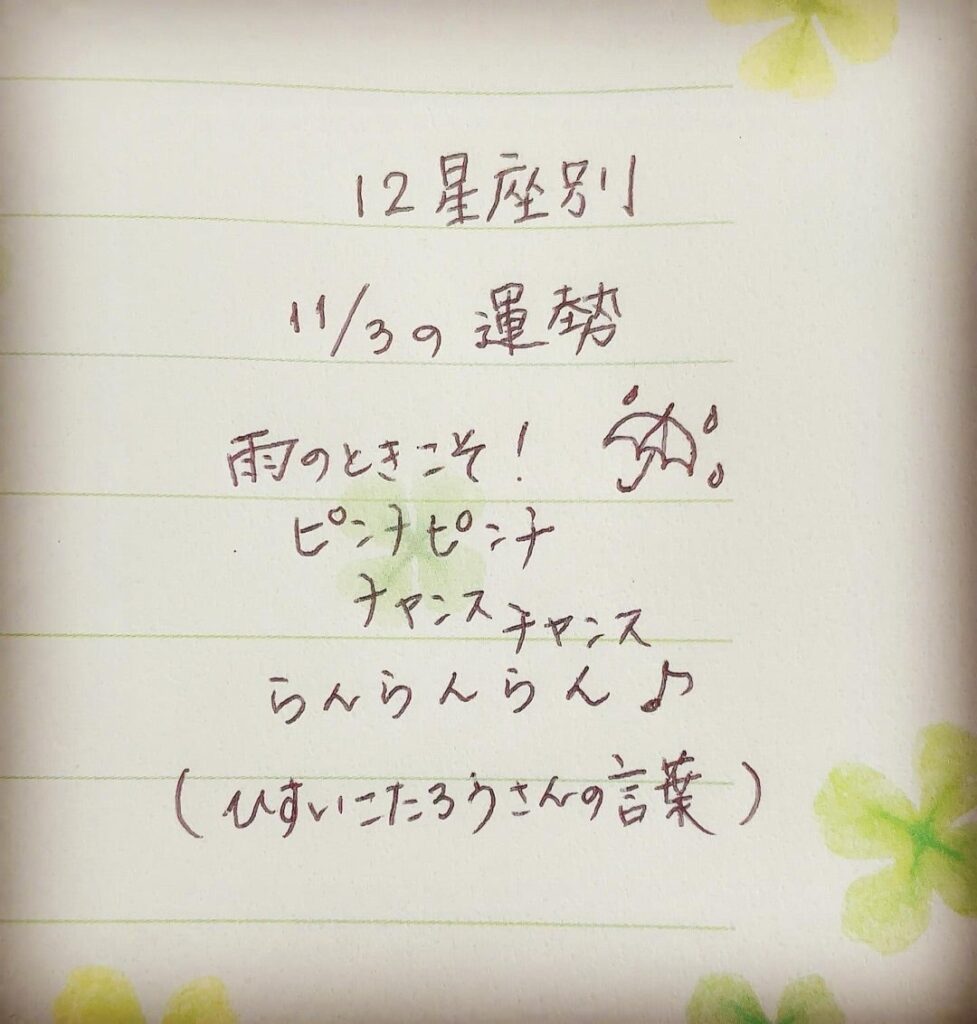 12星座別
11/3の運勢
雨のときこそ!
ピンチピンチ
チャンスチャンス
らんらんらん♪
(ひすいこたろうさんの言葉)